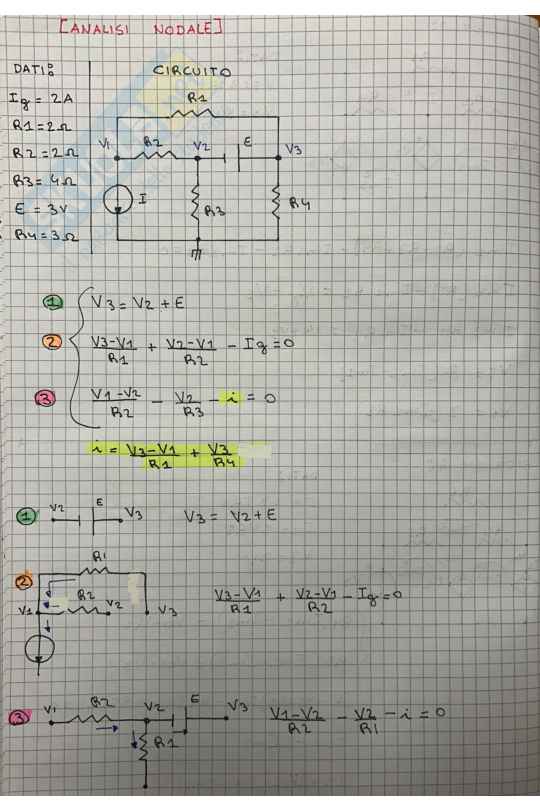 [ANALISI NODALE]
DATI:
CIRCUITO
Ig = 2A
R1 = 2Ω
R2 = 2Ω
R3 = 4Ω
E = 3V
R4 = 3Ω
R1
V1 R2 V2 E V3
I R3 R4
1 V3 = V2 + E
2 V3-V1/R1 + V2-V1/R2 - Ig = 0
3 V1-V2/R2 - V2/R3 - i = 0
i = V3-V1/R1 + V3/R4
1 V2 E V3 V3 = V2 + E
R1
2 R2 V3-V1/R1 + V2-V1/R2 - Ig = 0
V1 V2 V3
3 V1 R2 V2 E V3 V1-V2/R2 - V2/R1 - i = 0
R1